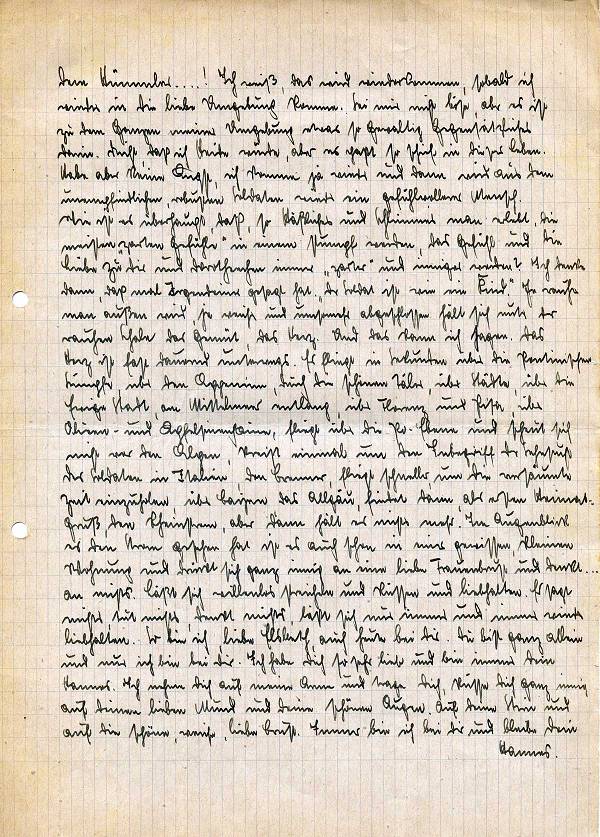 dem Kümmeler....! Ich weiß, das wird wiederkommen, sobald ich
wieder in die liebe Umgebung komme. Sei mir nicht böse aber es ist
zu dem Ganzen meiner Umgebung etwas so gewaltig Gegensätzliches
darin. Nicht daß ich leiden würde, aber es paßt so schlecht in dieses Leben.
Habe aber keine Angst, ich komme ja wieder und dann wird aus dem
unempfindlichen robusten Soldaten wieder ein gefühlvollerer Mensch.
Wie ist es überhaupt, daß, so Häßliches und Schlimmes man erlebt, die
meisten "zarten Gefühle" in einem stumpf werden, das Gefühl und die
Liebe zu Dir und Dorotheechen immer "zarter" und inniger werden? Ich denke
dann, daß mal Irgendeiner gesagt hat "der Soldat ist wie ein Kind". Je rauher
man außen wird, so weicher und umsomehr abgeschlossen hält sich unter der
rauhen Schale das Gemüt, das Herz. Und das kann ich sagen. Das
Herz ist fast dauernd unterwegs. Es fliegt in Sekunden über die Pontinischen
Sümpfe, über den Appennin, durch die schönen Täler, über Städte, über die
Ewige Stadt, am Mittelmeer entlang, über Florenz und Pisa, über
Oliven- und Apfelsinenhaine, fliegt über die Po-Ebene und scheut sich
nicht vor den Alpen, kreist einmal um den Inbegriff der Sehnsucht
der Soldaten in Italien, den Brenner, fliegt schneller um die versäumte
Zeit einzuholen, über Bayern das Allgäu, findet dann, als ersten Heimat-
gruß, den Rheinstrom, aber dann hält es nichts mehr. Im Augenblick
wo es den Strom gesehen hat ist es auch schon in einer gewissen, kleinen
Wohnung und drückt sich ganz innig an eine liebe Frauenbrust und denkt...
an nichts. Läßt sich willenlos streicheln und küssen und liebhalten. Es sagt
nichts, tut nichts, denkt nichts, läßt sich nur immer und immer wieder
liebhalten. So bin ich, liebe Elsbeth, auch heute bei Dir. Du bist ganz allein
und nur ich bin bei Dir. Ich habe Dich so sehr lieb und bin immer Dein
Hannes. Ich nehme Dich auf meine Arme und trage Dich, küsse Dich ganz innig
auf Deinen lieben Mund und Deine schönen Augen. Auf Deine Stirn und
auf die schöne, weiche, liebe Brust. Immer bin ich bei Dir und bleibe Dein
Hannes.